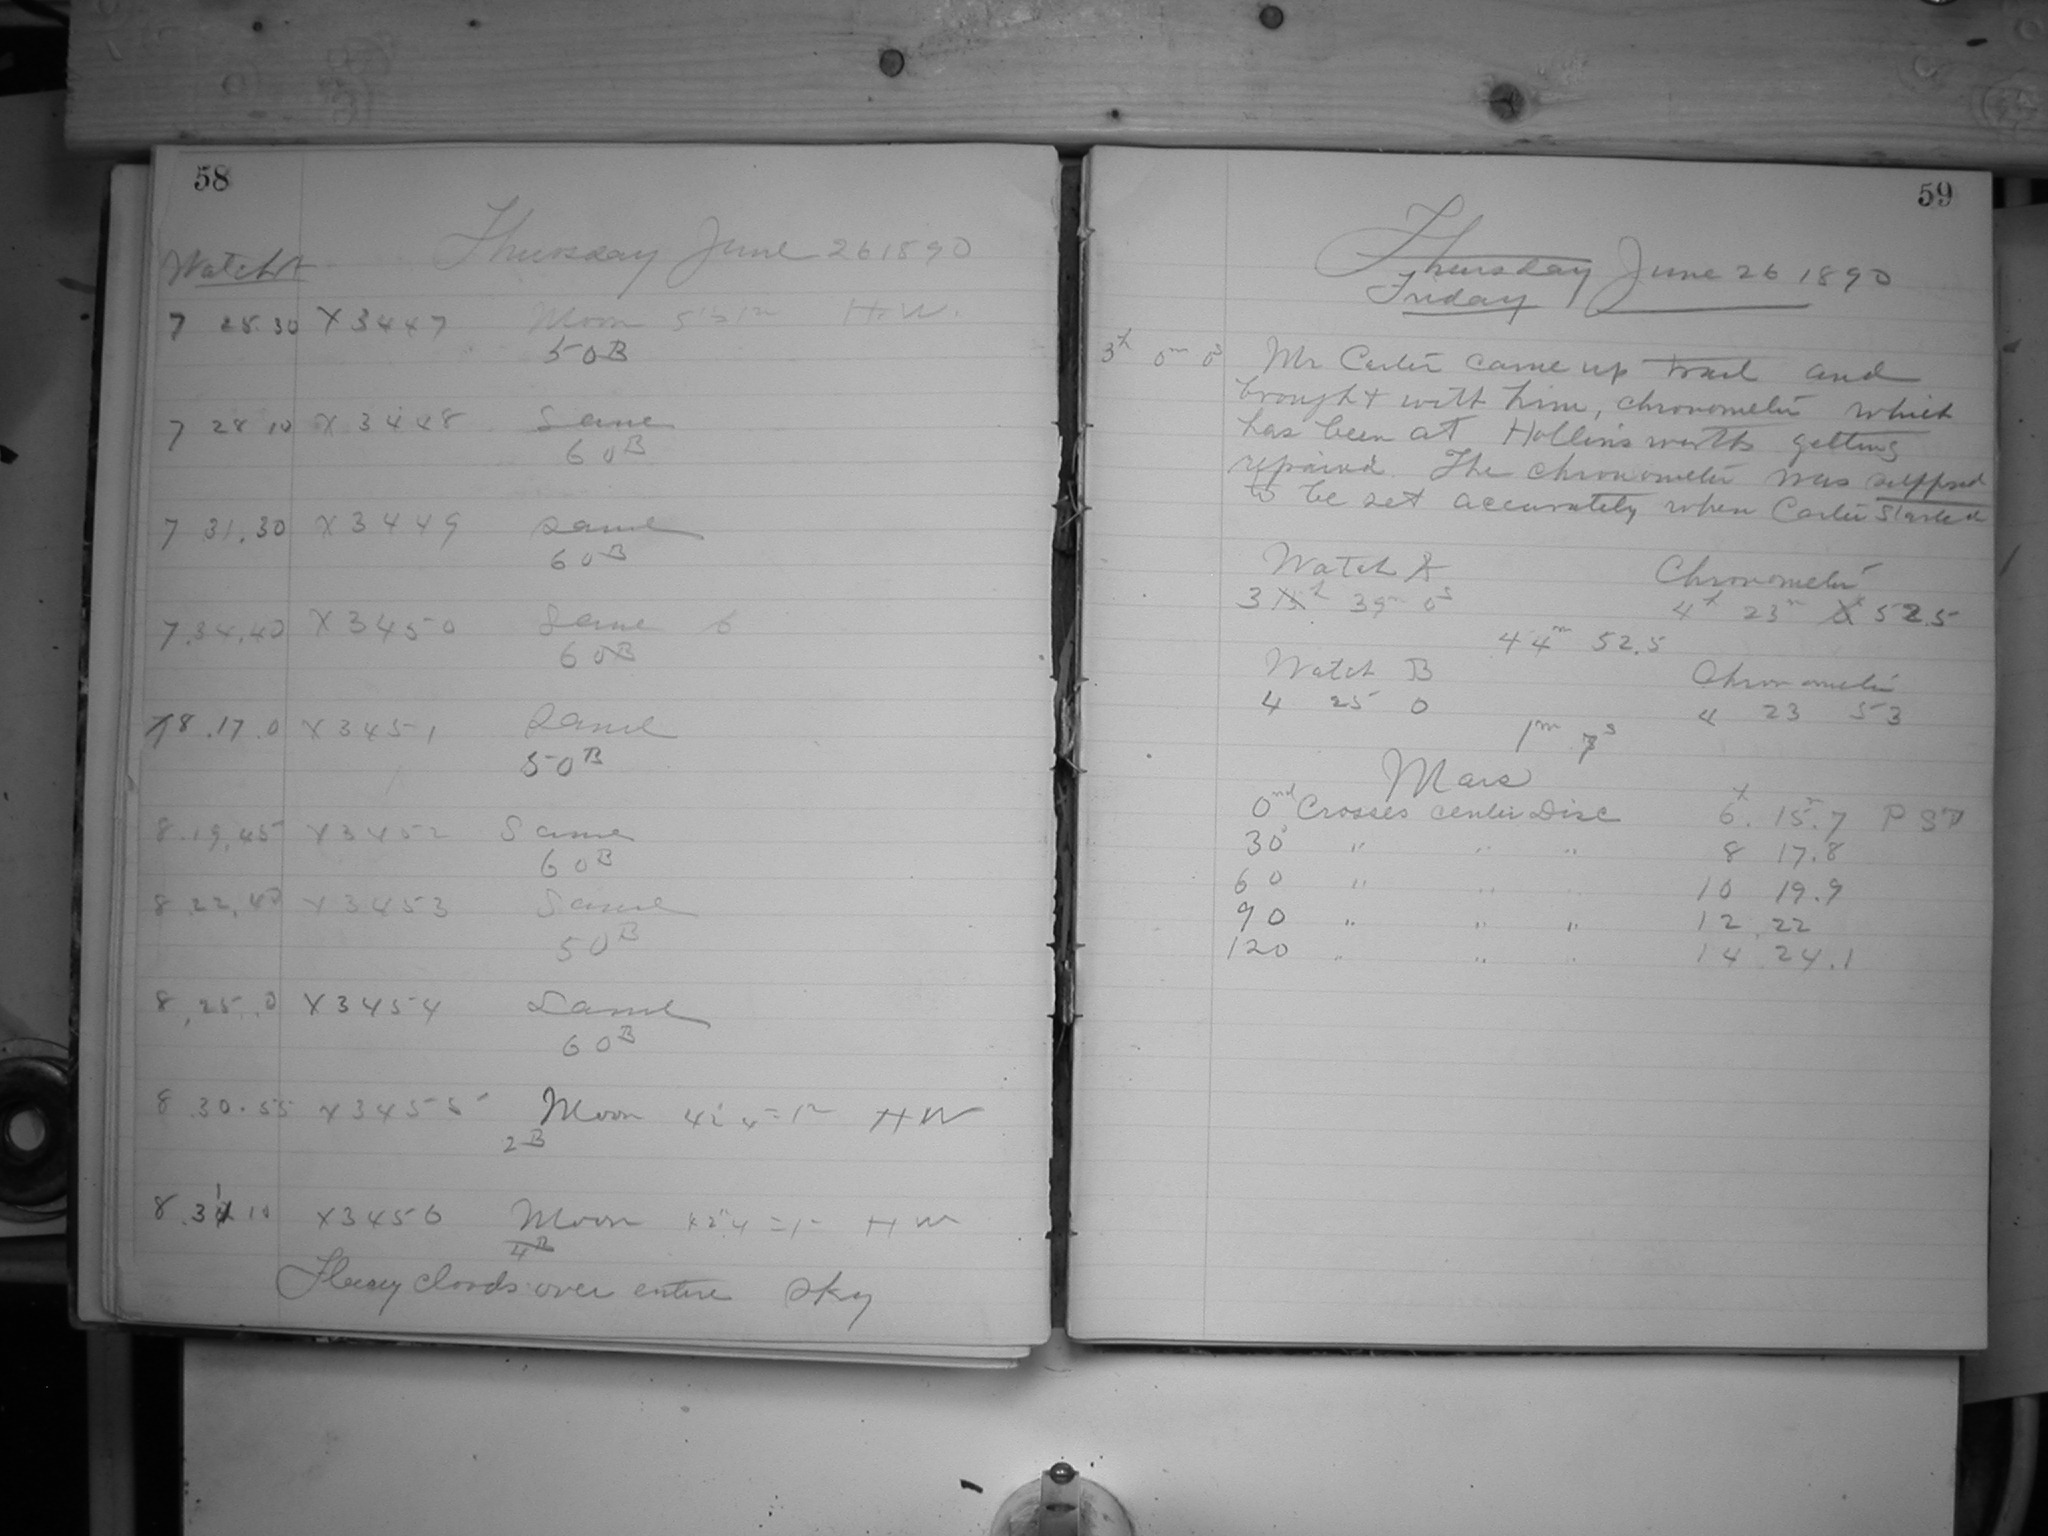 58
Thursday June 26 1890
Watch A
7 25.30 X3447 Moon H.W.
50B
7 28 10 X3448 Same
60B
7 31.30 X3449 Same
60B
7.34.40 X3450 Same
60B
8.17.0 X3451 Same
50B
8.19.45 X3452 Same
60B
8.22.40 X3453 Same
50B
8.25.0 X3454 Same
60B
8.30.55 X3455 Moon HW
2B
8.31 10 X3456 Moon HW
4B
Fleecy clouds over entire sky
59
Thursday June 26 1890
Friday
3h 0m 0s Mr Carter came up trail and
brought with him, chronometer which
has been at Hollinsworths getting
repaired. The chronometer was supposed
to be set accurately when Carter started
Watch A Chronometer
3 39m 0s 4h 23m 52.5
44m 52.5
Watch B Chronometer
4 25 0 4 23 53
1m 7s
Mars
0nd Crosses center Disc 6h. 15m.7 PST
30 " " " 8 17.8
60 " " " 10 19.9
90 " " " 12 22
120 " " " 14 24.1